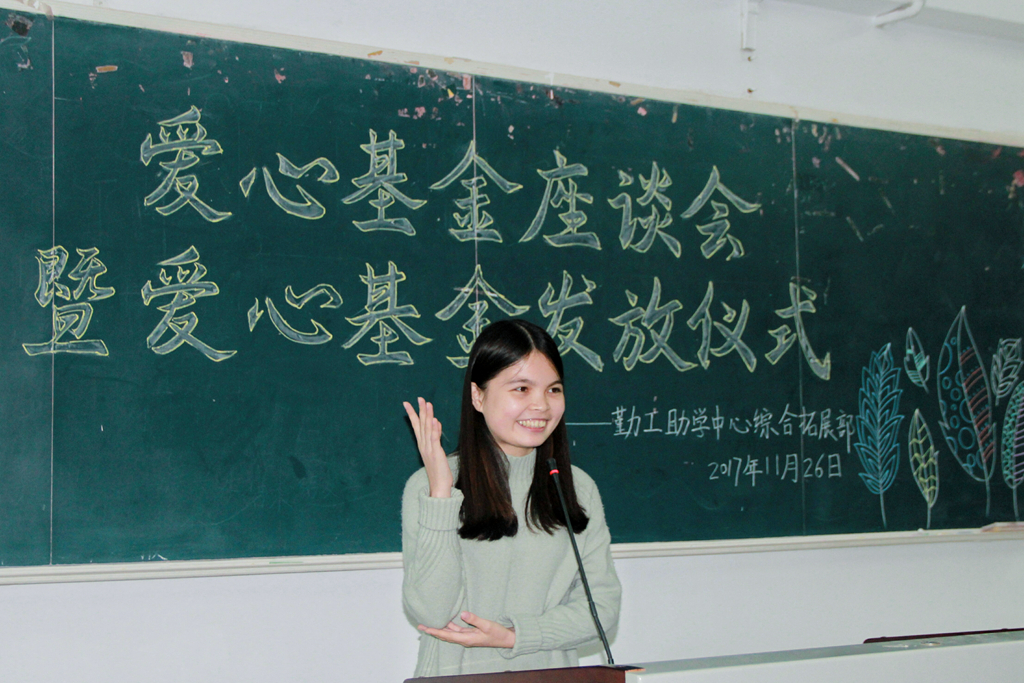 爱心基金座谈会
暨爱心基金发放仪式
——勤工助学中心综合拓展部
2017年11月26日